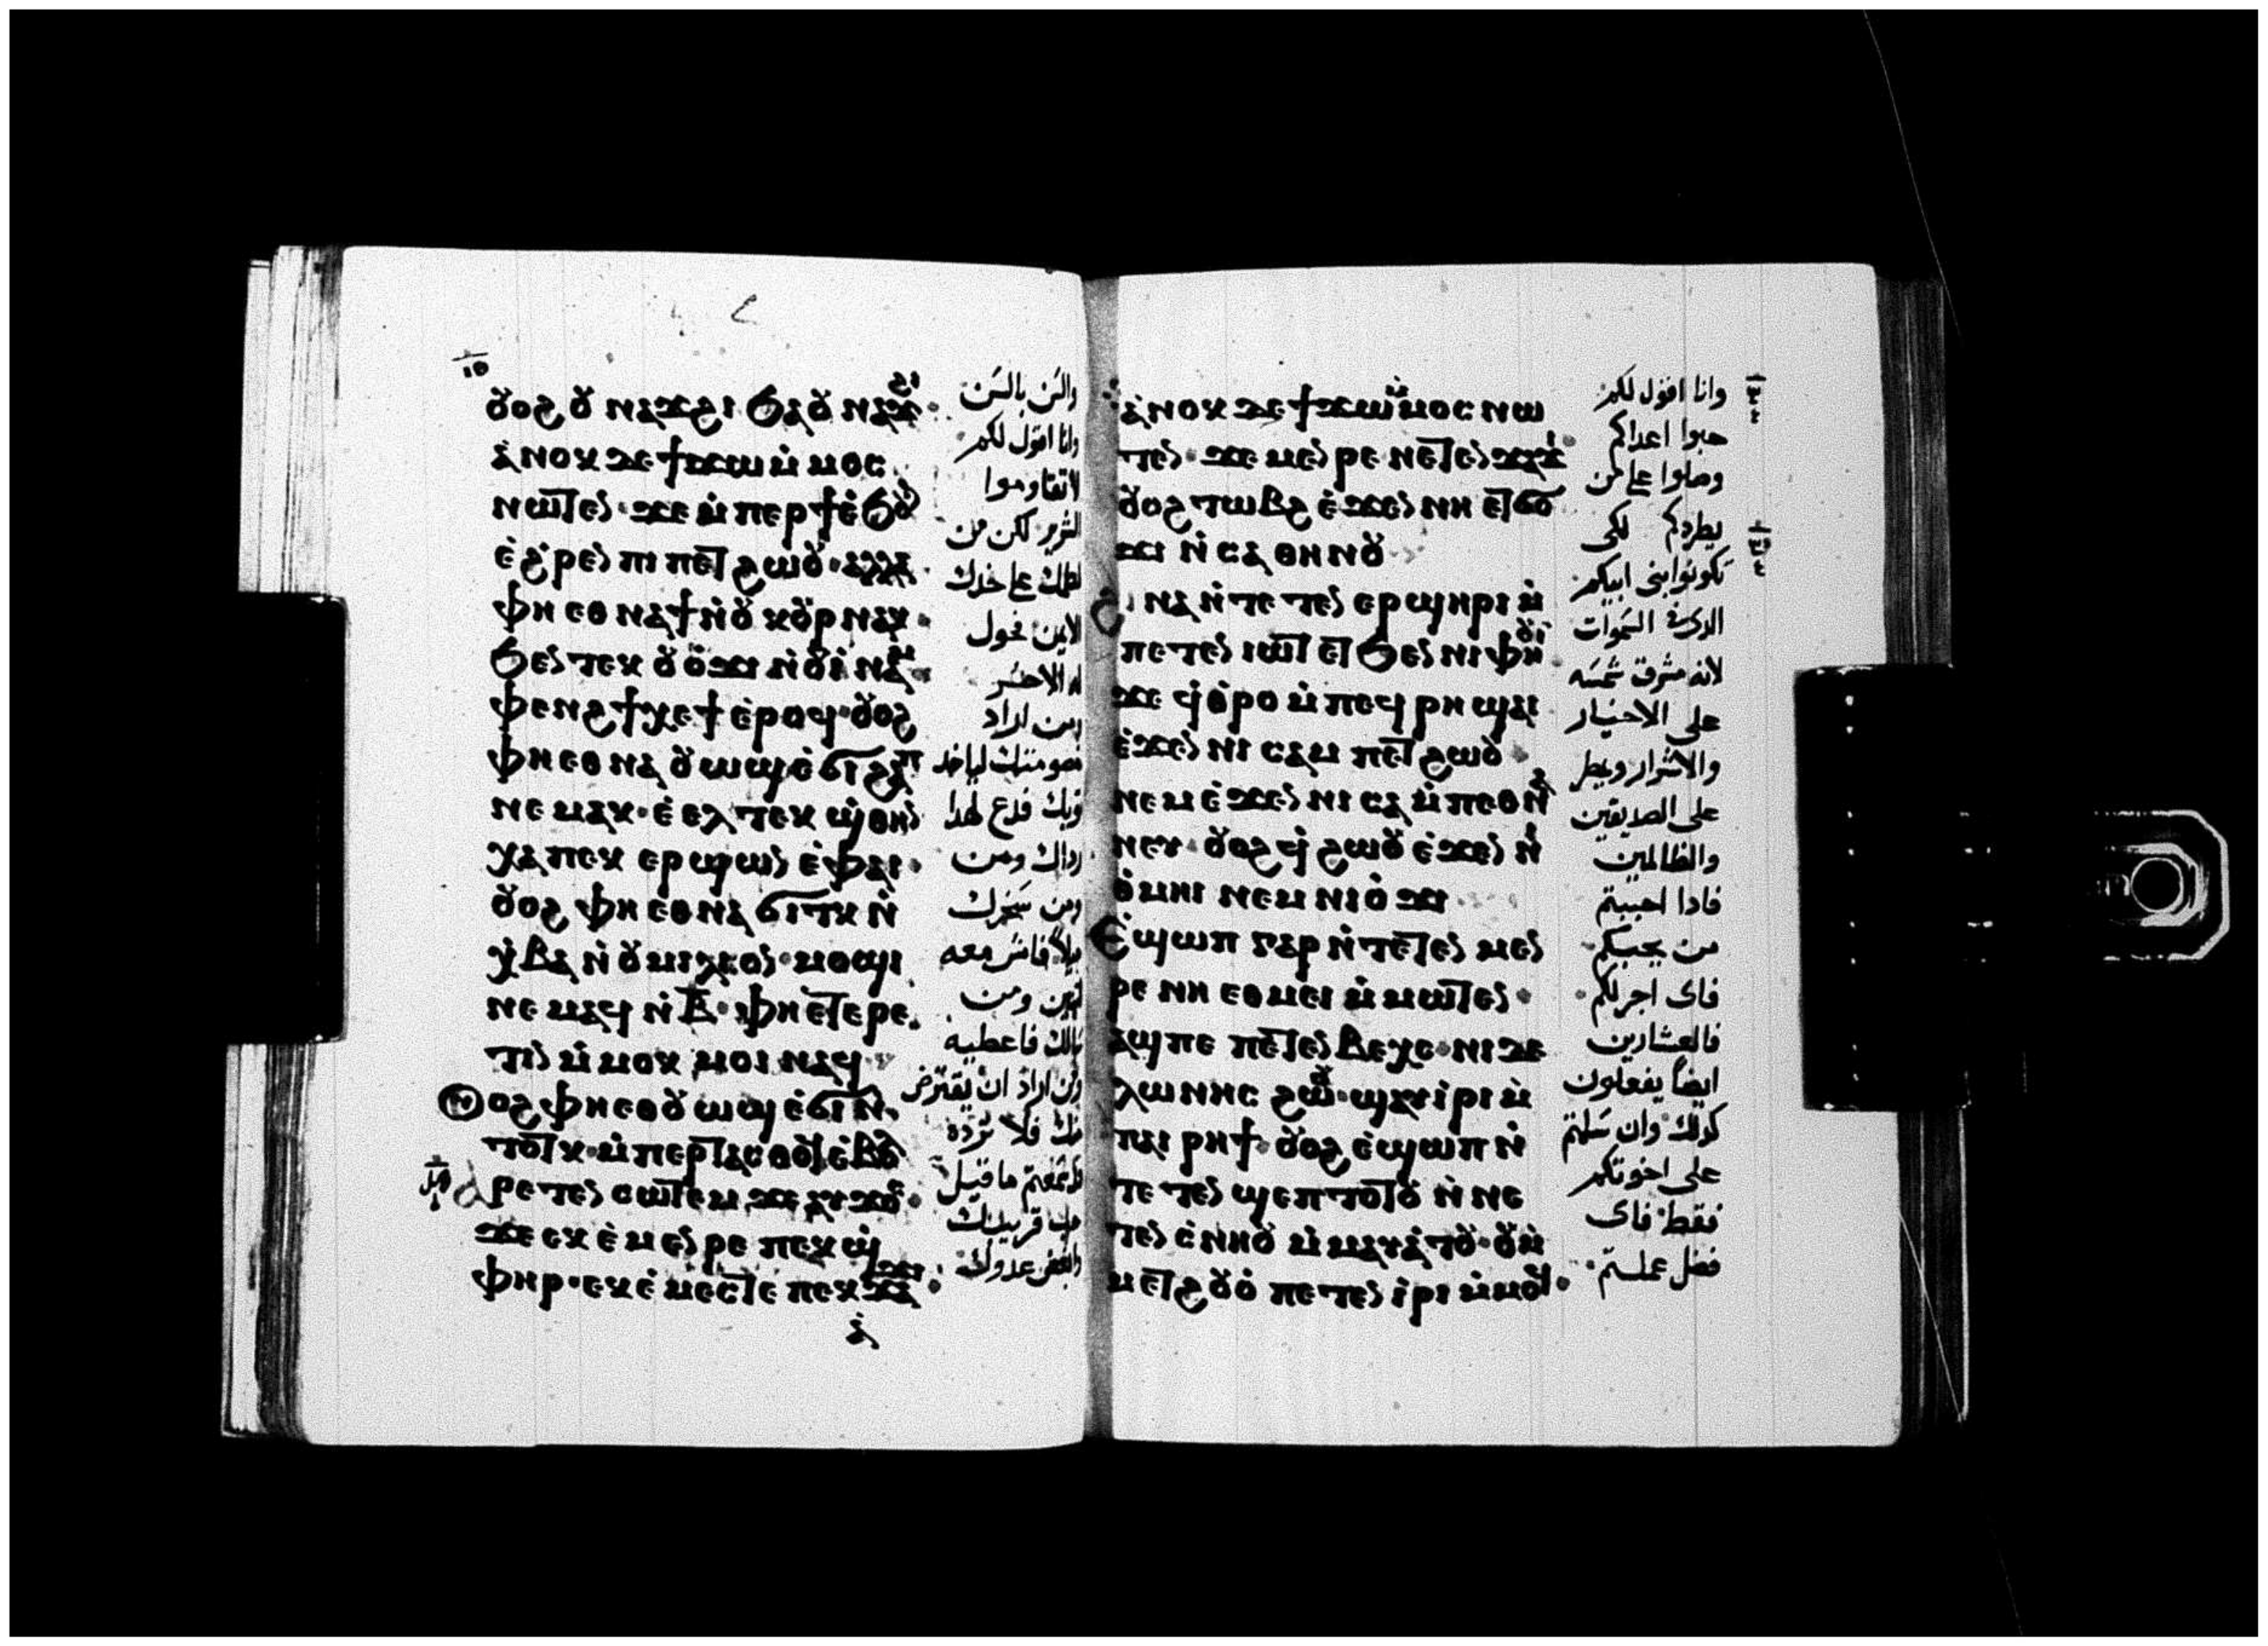 ⲟⲩⲟϩ ⲟⲩⲛⲁϫϩⲓ ϧⲁ ⲟⲩⲛⲁϫϩⲓ·
ⲁ̀ⲛⲟⲕ ⲇⲉ ϯϫⲱ ⲙ̀ⲙⲟⲥ
ⲛⲱⲧⲉⲛ· ϫⲉ ⲙ̀ⲡⲉⲣϯ ⲉ̀ϧⲟⲩⲛ
ⲉ̀ϩ̀ⲣⲉⲛ ⲡⲓⲡⲉⲧϩⲱⲟⲩ· ⲁⲗⲗⲁ·
ⲫⲏ ⲉⲑⲛⲁϯ ⲛ̀ⲟⲩⲕⲟⲩⲣ ⲛⲁⲕ·
ϧⲉⲛ ⲧⲉⲕ ⲟⲩⲟ̀ϫⲓ ⲛ̀ⲟⲩⲓ̀ⲛⲁⲙ·
ⲫⲉⲛϩ ϯⲭⲉϯ ⲉ̀ⲣⲟϥ· ⲟⲩⲟϩ
ⲫⲏ ⲉⲑⲛⲁⲟⲩⲱϣ ⲉ̀ϭⲓϩⲁⲡ
ⲛⲉⲙⲁⲕ· ⲉ̀ⲉⲗ ⲧⲉⲕϣ̀ⲑⲏⲛ
ⲭⲁ ⲡⲉⲕ ⲉⲣϣⲱⲛ ⲉ̀ⲫⲁⲓ·
ⲟⲩⲟϩ ⲫⲏ ⲉⲑⲛⲁϭⲓⲧⲕ ⲛ̀
ⲭ̀ⲃⲁ ⲛ̀ⲟⲩⲙⲓⲗⲓⲟⲛ· ⲙⲟϣⲓ
ⲛⲉⲙⲁϥ ⲛ̀ⲃ̅· ⲫⲏ ⲉⲧⲉⲣⲉ
ⲧⲓⲛ ⲙ̀ⲙⲟⲕ ⲙⲟⲓ ⲛⲁϥ·
ⲟⲩⲟϩ ⲫⲏ ⲉⲑⲟⲩⲱϣ ⲉ̀ϭⲓ ⲛ̀
ⲧⲟⲧⲕ· ⲙ̀ⲡⲉⲣⲧⲁⲥⲑⲟϥ ⲉ̀ⲃⲟⲗ
ⲁⲣⲉⲧⲉⲛ ⲥⲱⲧⲉⲙ ϫⲉ ⲁⲩϫⲟⲥ·
ϫⲉ ⲉⲕⲉ̀ⲙⲉⲛⲣⲉ ⲡⲉⲕϣ̀
ⲫⲏⲣ· ⲉⲕⲉ̀ⲙⲉⲥⲧⲉ ⲡⲉⲕϫⲁϫⲓ·
ⲁ̀
والسَن بالسَن
وانا اقول لكم
لا تقاوموا
الشرير لكن من
لطمك على خدك
الايمن فحول
له الاخر
ومن اراد
خصومتك لياخد
ثوبك فدع لهدا
رداك ومن
ومن سَخرك
ميلاً فامش معه
اتنين ومن
سالك فاعطيه
ومن اراد ان يقترض
منك فلا ترده
قد سمعتم ما قيل
حب قريبك
وابغض عدوك
ⲁ̀ⲛⲟⲕ ⲇⲉ ϯϫⲱ ⲙ̀ⲙⲟⲥ ⲛⲱ
ⲧⲉⲛ· ϫⲉ ⲙⲉⲛⲣⲉ ⲛⲉⲧⲉⲛϫⲁϫⲓ·
ⲟⲩⲟϩ ⲧⲱⲃϩ ⲉ̀ϫⲉⲛ ⲛⲏ ⲉⲧϭⲟ
ϫⲓ ⲛ̀ⲥⲁ ⲑⲏⲛⲟⲩ
ϩⲓⲛⲁ ⲛ̀ⲧⲉⲧⲉⲛ ⲉⲣϣⲏⲣⲓ ⲙ̀
ⲡⲉⲧⲉⲛ ⲓⲱⲧ ⲉⲧϧⲉⲛ ⲛⲓⲫⲏⲟⲩⲓ̀·
ϫⲉ ϥ̀ⲑ̀ⲣⲟ ⲙ̀ⲡⲉϥ ⲣⲏ ϣⲁⲓ
ⲉ̀ϫⲉⲛ ⲛⲓⲥⲁⲙ ⲡⲉⲧϩⲱⲟⲩ
ⲛⲉⲙ ⲉ̀ϫⲉⲛ ⲛⲓⲥⲁ ⲙ̀ⲡⲉⲑⲛⲁ
ⲛⲉⲩ· ⲟⲩⲟϩ ϥ̀ϩⲱⲟⲩ ⲉ̀ϫⲉⲛ ⲛⲓ
ⲑ̀ⲙⲏⲓ ⲛⲉⲙ ⲛⲓⲟ̀ϫⲓ
ⲉ̀ϣⲱⲡ ⲅⲁⲣ ⲛ̀ⲧⲉⲧⲉⲛ ⲙⲉⲛ
ⲣⲉ ⲛⲏ ⲉⲑⲙⲉⲓ ⲙ̀ⲙⲱⲧⲉⲛ·
ⲁϣ ⲡⲉ ⲡⲉⲧⲉⲛⲃⲉⲭⲉ· ⲛⲓⲧⲉ
ⲗⲱⲛⲏⲥ ϩⲱⲟⲩ· ϣⲁⲩⲓ̀ⲣⲓ ⲙ̀
ⲡⲁⲓ ⲣⲏϯ· ⲟⲩⲟϩ ⲉ̀ϣⲱⲡ ⲛ̀
ⲧⲉⲧⲉⲛ ϣⲉⲡⲧⲟⲧⲟⲩ ⲛ̀ⲛⲉ
ⲧⲉⲛ ⲥ̀ⲛⲏⲟⲩ ⲙ̀ⲙⲁⲩⲁ̀ⲧⲟⲩ· ⲟⲩ ⲙ̀
ⲙⲉⲧϩⲟⲩⲟ̀ ⲡⲉⲧⲉⲛ ⲓ̀ⲣⲓ ⲙ̀ⲙⲟϥ·
وانا اقول لكم
حبوا اعداكم
وصلوا على من
يطردكم لكى
تكونوا بنى ابيكم
الدى فى السَموات
لانه مشرق شمسَه
على الاخيار
والاشرار ويمطر
على الصديقين
والظالمين
فادا احببتم
من يحبكم
فاى اجر لكم
فالعشارين
ايضاً يفعلون
كدلك وان سَلمتم
على اخوتكم
فقط فاى
فضل عملتم